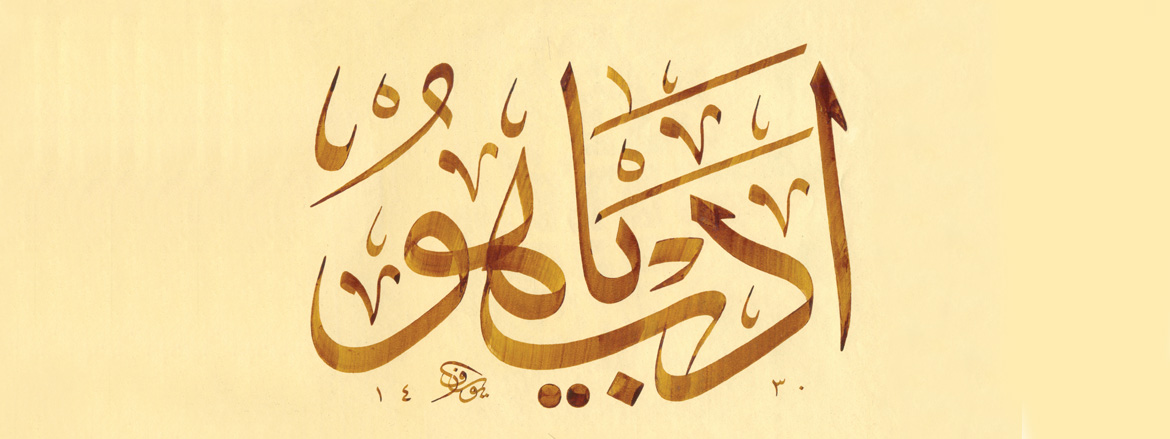 ادب يا هو
١٤ ٣٠